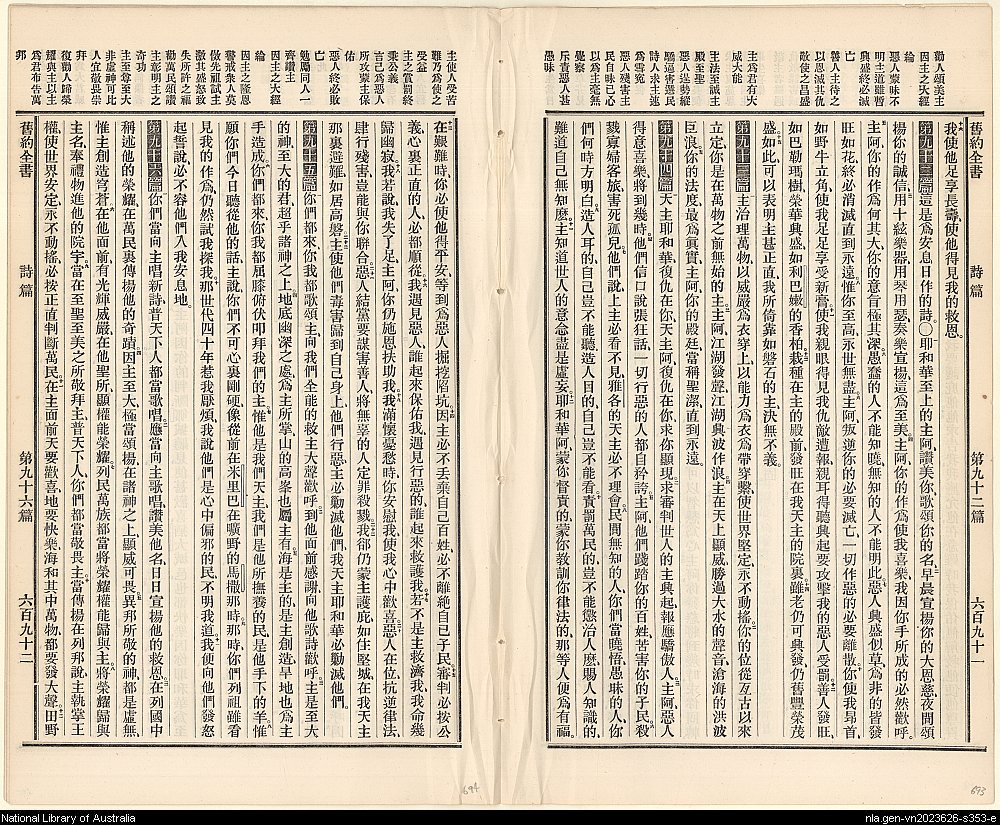 舊約全書 詩篇 第九十二篇 六百九十一
勸人頌美主
因主之大經
綸
惡人蒙昧不
明主道雖暫
興盛終必滅
亡
善人主待之
以恩滅其仇
敵使之昌盛
主為君有大
威大能
主法至誠主
殿至聖
惡人逞勢縱
驕逼害選民
詩人求主速
為雪冤
惡人殘害主
民自昧己心
以為主毫無
覺察
斥責惡人甚
愚昧
我使他足享長壽、使他得見我的救恩。
第九十二篇 這是為安息日作的詩。〇耶和華至上的主阿、讚美你、歌頌你的名、早晨宣揚你的大恩慈、夜間頌
揚你的誠信、用十絃樂器、用琴用瑟、奏樂宣揚、這為至美、主阿、你的作為使我喜樂、我因你手所成的、必然歡呼。
主阿、你的作為何其大、你的意旨極其深、愚蠢的人不能知曉、無知的人不能明此、惡人興盛似草、為非的皆發
旺如花、終必消滅直到永遠、惟你至高、永世無盡、主阿、叛逆你的必要滅亡、一切作惡的必要離散、你使我昂首
如野牛立角、使我足足享受新膏、使我親眼得見我仇敵遭報、親耳得聽興起要攻擊我的惡人受罰、善人發旺、
如巴勒瑪樹、榮華興盛、如利巴嫩的香柏、栽種在主的殿前、發旺在我天主的院裏、雖老仍可興發、仍舊豐榮茂
盛、如此可以表明主甚正直、我所倚靠如磐石的主、決無不義。
第九十三篇 主治理萬物、以威嚴為衣穿上、以能力為衣為帶穿繫、使世界堅定、永不動搖、你的位從亙古以來
立定、你是在萬物之前無始的主、主阿、江湖發聲、江湖興波作浪、主在天上顯威、勝過大水的聲音、滄海的洪波
巨浪、你的法度最為真實、主阿、你的殿廷當稱聖潔、直到永遠。
第九十四篇 天主耶和華、復仇在你、天主阿、復仇在你、求你顯現、求審判世人的主興起、報應驕傲人、主阿、惡人
得意喜樂、將到幾時、他們信口說張狂話、一切行惡的人、都自矜誇、主阿、他們踐踏你的百姓、苦害你的子民、殺
戮寡婦客旅、害死孤兒、他們說、上主必看不見、雅各的天主必不理會、民間無知的人、你們當曉悟、愚昧的人、你
們何時方明白、造人耳的、自己豈不能聽、造人目的、自己豈不能看、責罰萬民的、豈不能懲治人麼、賜人知識的、
難道自己無知麼、主知道世人的意念盡是虛妄、耶和華阿、蒙你督責的、蒙你教訓你律法的、那等人便為有福、
舊約全書 詩篇 第九十六篇 六百九十二
主使人受苦
難乃為使之
受益
主之賞罰終
秉公義
言己為惡人
所攻蒙主保
佑
惡人終必敗
亡
勉勵同人一
齊讚主
因主之大經
綸
因主之隆恩
警戒眾人莫
傚先祖試主
激其盛怒致
失所許之福
勸萬民頌讚
主彰明主之
奇功
主至尊至大
非虛神可比
人宜敬畏崇
拜
復勸人歸榮
耀與主以主
為君布告萬
邦
在艱難時、你必使他得平安、等到為惡人掘挖陷坑、因主必不丟棄自己百姓、必不離絕自己子民、審判必按公
義、心裏正直的人、必都順從、我遇見惡人、誰起來保佑我、我遇見行惡的、誰起來救護我、若不是主救濟我、我命幾
歸幽寂、我若說我失了足、主阿、你仍施恩扶助我、我滿懷憂愁時、你安慰我、使我心中歡喜、惡人在位、抗逆律法、
肆行殘害、豈能與你聯合、惡人結黨要謀害善人、將無辜的人定罪殺戮、我卻仍蒙主護庇、如住堅城、在我天主
那裏避難、如居高磐、主使他們毒害歸到自己身上、他們行惡、主必勦滅他們、我天主耶和華必勦滅他們。
第九十五篇 你們都來、你我都歌頌主、向我們全能的救主大聲歡呼、到他面前感謝、向他歌詩歡呼、主是至大
的神、至大的君、超乎諸神之上、地底幽深之處、為主所掌、山的高峯也屬主有、海是主的、是主創造、旱地也為主
手造成、你們都來、你我都屈膝俯伏叩拜我們的主、惟他是我們天主、我們是他所撫養的民、是他手下的羊、惟
願你們今日聽從他的話、主說、你們不可心裏剛硬、像從前在米里巴、在曠野的馬撒那時、那時你們列祖雖看
見我的作為、仍然試我探我、那世代四十年惹我厭煩、我說他們是心中偏邪的民、不明我道、我便向他們發怒
起誓說、必不容他們入我安息地。
第九十六篇 你們當向主唱新詩、普天下人都當歌唱、應當向主歌唱、讚美他名、日日宣揚他的救恩、在列國中
稱述他的榮耀、在萬民裏傳揚他的奇蹟、因主至大、極當頌揚、在諸神之上顯威可畏、異邦所敬的神、都是虛無、
惟主創造穹蒼、在他面前有光輝威嚴、在他聖所顯權能榮耀、列民萬族、都當將榮耀權能歸與主、將榮耀歸與
主名、奉禮物進他的院宇、當在至聖至美之所敬拜主、普天下人、你們都當敬畏主、當傳揚在列邦說、主執掌王
權、使世界安定、永不動搖、必按正直判斷萬民、在主面前、天要歡喜、地要快樂、海和其中萬物、都要發大聲、田野
694
693
National Library of Australia
nla.gen-vn2023626-s353-e